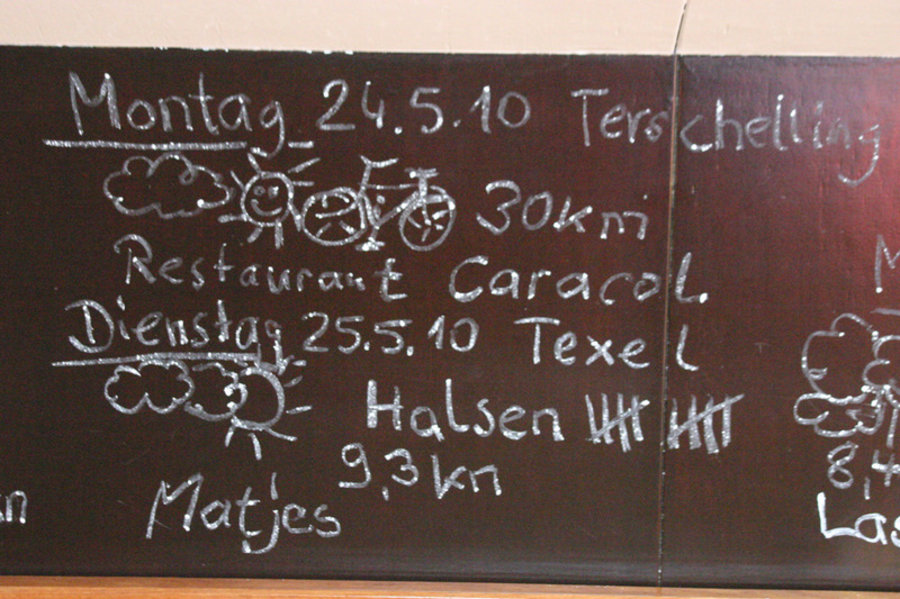 Montag 24.5.10 Terschelling
30km
Restaurant Caracol
Dienstag 25.5.10 Texel
Halsen
9,3 kn
Matjes
kn
M
8,4
Las